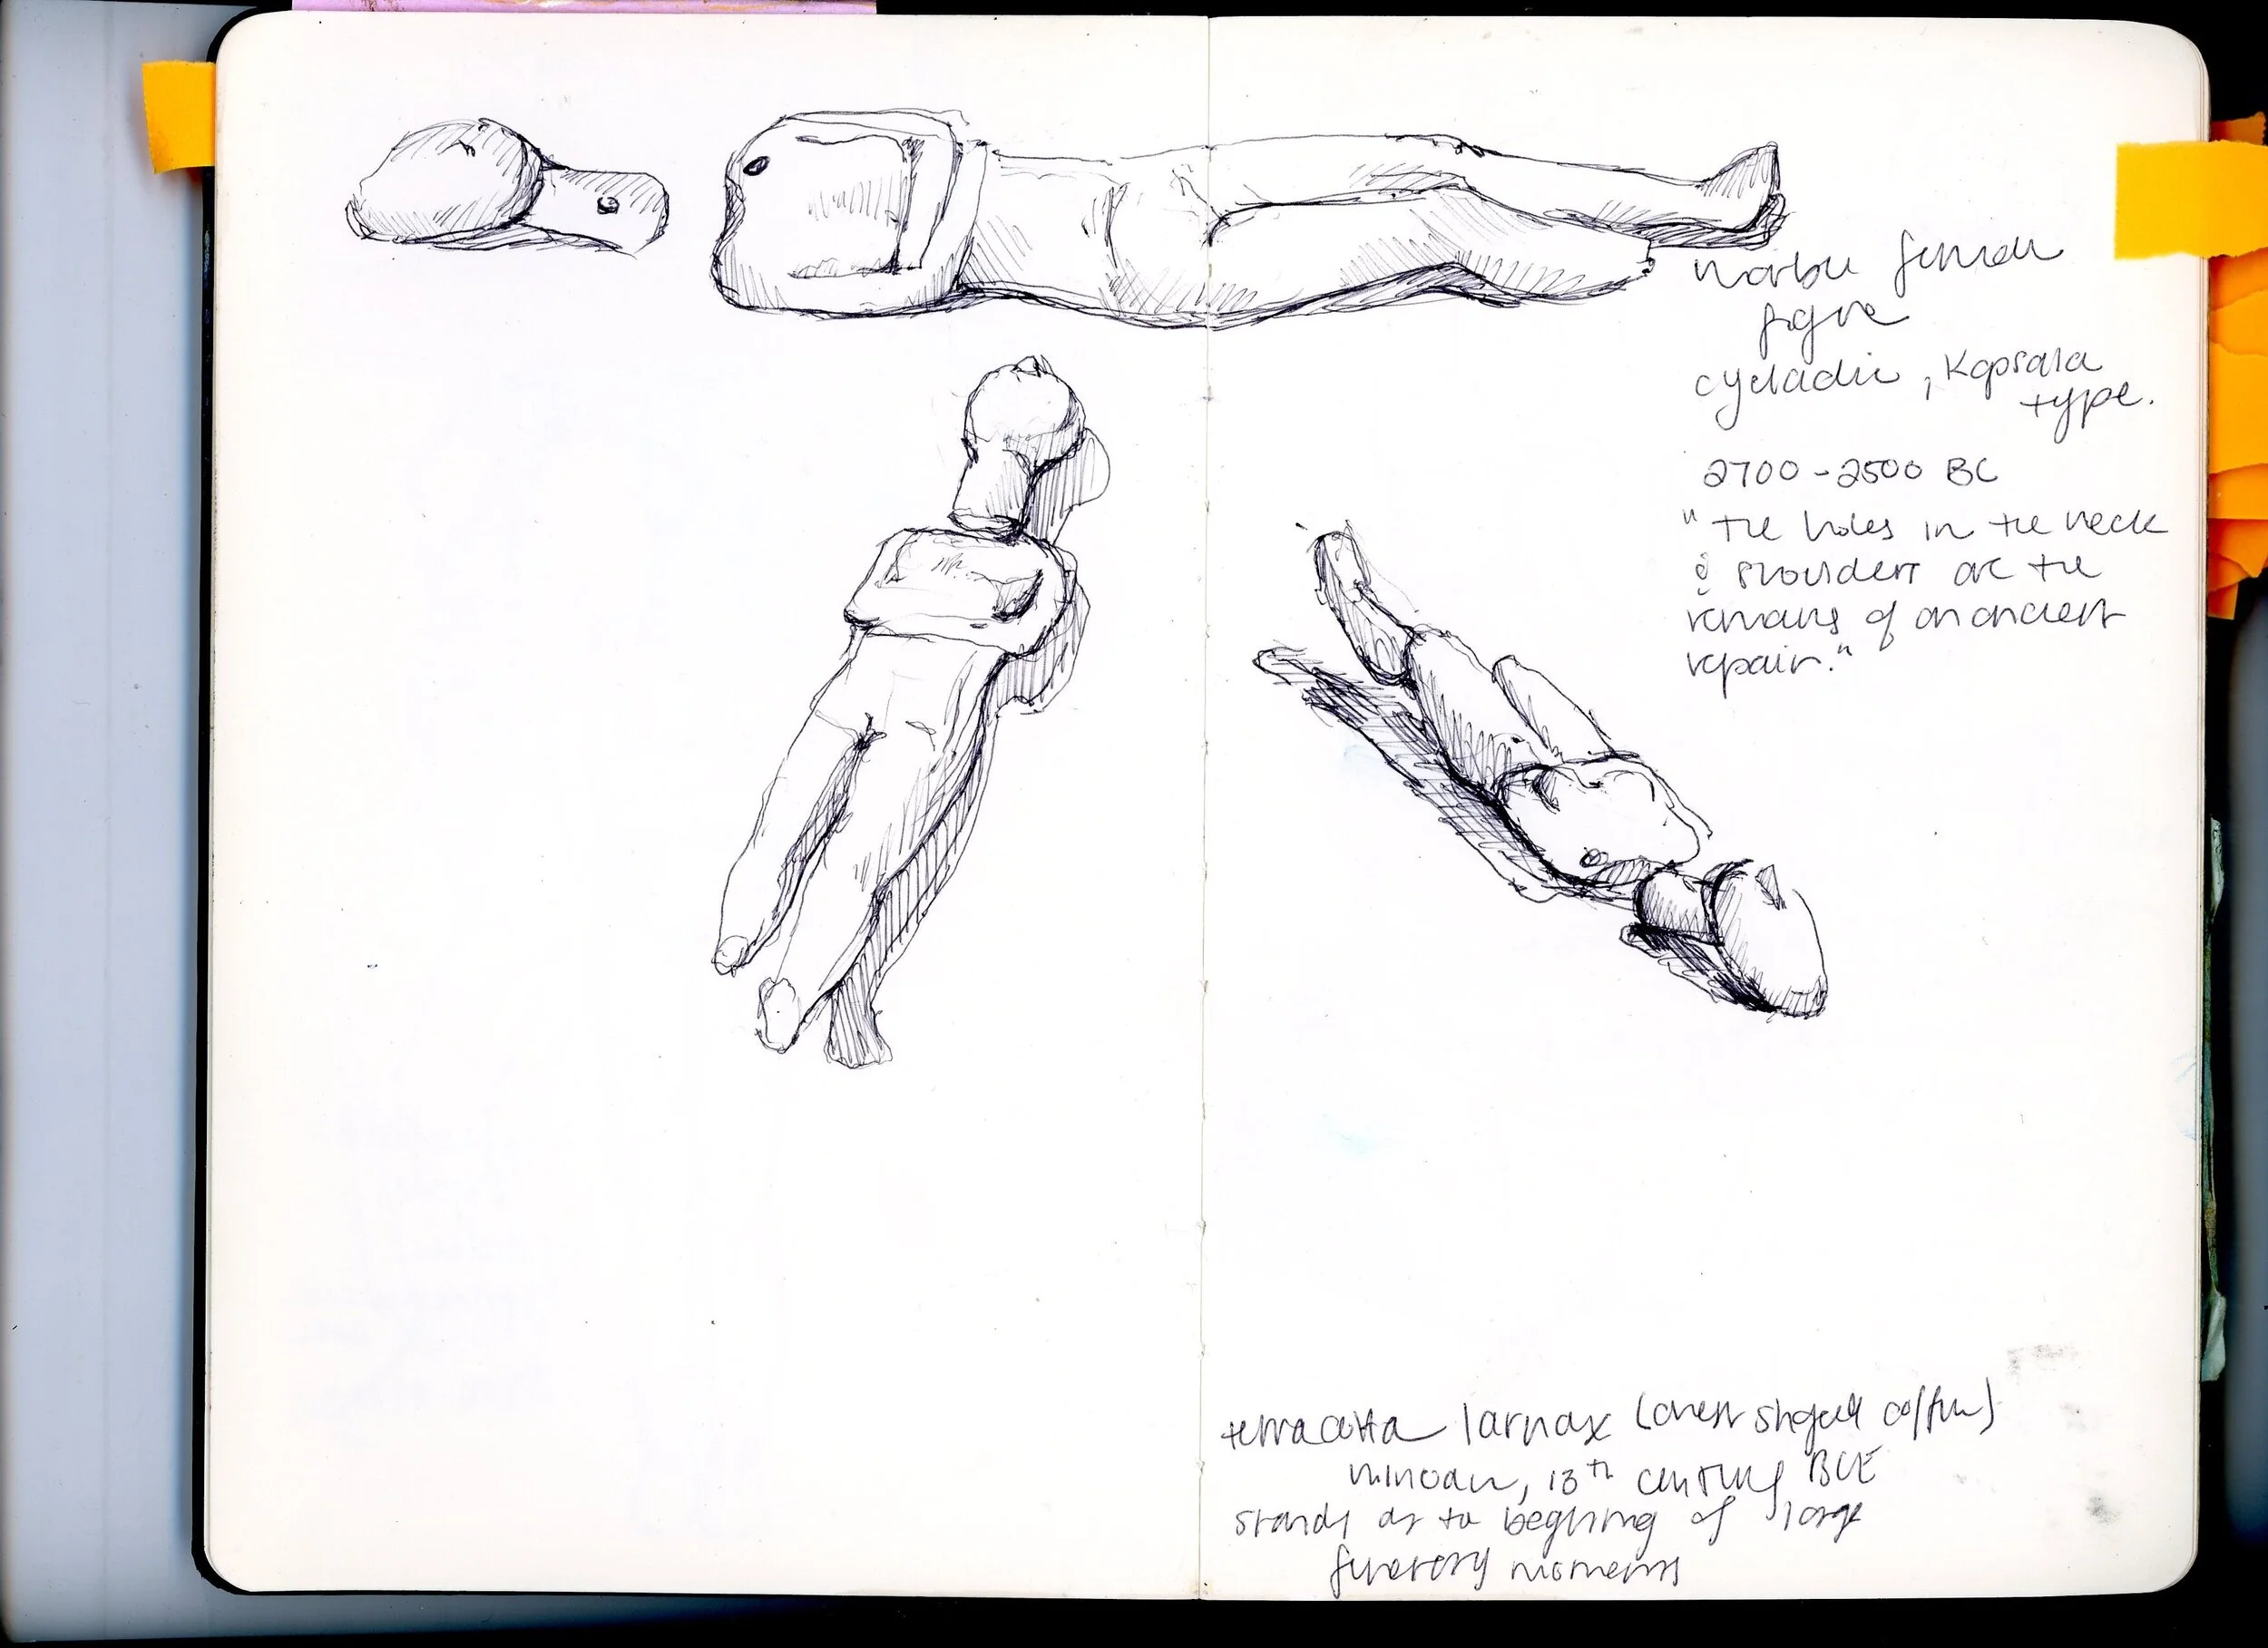 marble female
figure
cycladic, Kapsala
type.
2700-2500 BC
"the holes in the neck
& shoulders are the
remains of an ancient
repair."
terracotta larnax (chest shaped coffin)
minoan, 13th century BCE
stands at the beginning of large
funerary moments